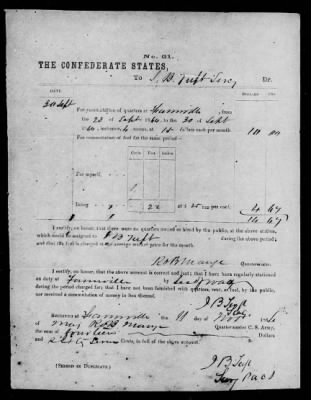 No. 61.
THE CONFEDERATE STATES,
To J. B. Tuft Surg, Dr.
DATE. DOLLARS CTS.
30 Sept For commutation of quarters at Farmville, from
the 22 of Sept 1864, to the 30 of Sept
1864, inclusive, rooms, at dollars each per month. 10 00
For commutation of fuel for the same period—
Cords. Feet.
For myself,
Being 22 per cord, 4 67
14 67
I certify, on honor, that there were no quarters owned or hired by the public, at the above station,
which could be assigned to J B Tuft during the above period;
and that the fuel is charged at the average market price for the month.
Quartermaster.
I certify, on honor, that the above account is correct and just; that I have been regularly stationed
on duty at Farmville by
during the period charged for; that I have not been furnished with quarters, rent, or fuel, by the public,
nor received a commutation of money in lieu thereof.
J B Tuft
Surg
Received at Farmville the 11 of Nov 1864
of Maj Quartermaster C. S. Army,
the sum of fourteen Dollars
and Cents, in full of the above account.
J B Tuft
Surg
[SIGNED IN DUPLICATE.]